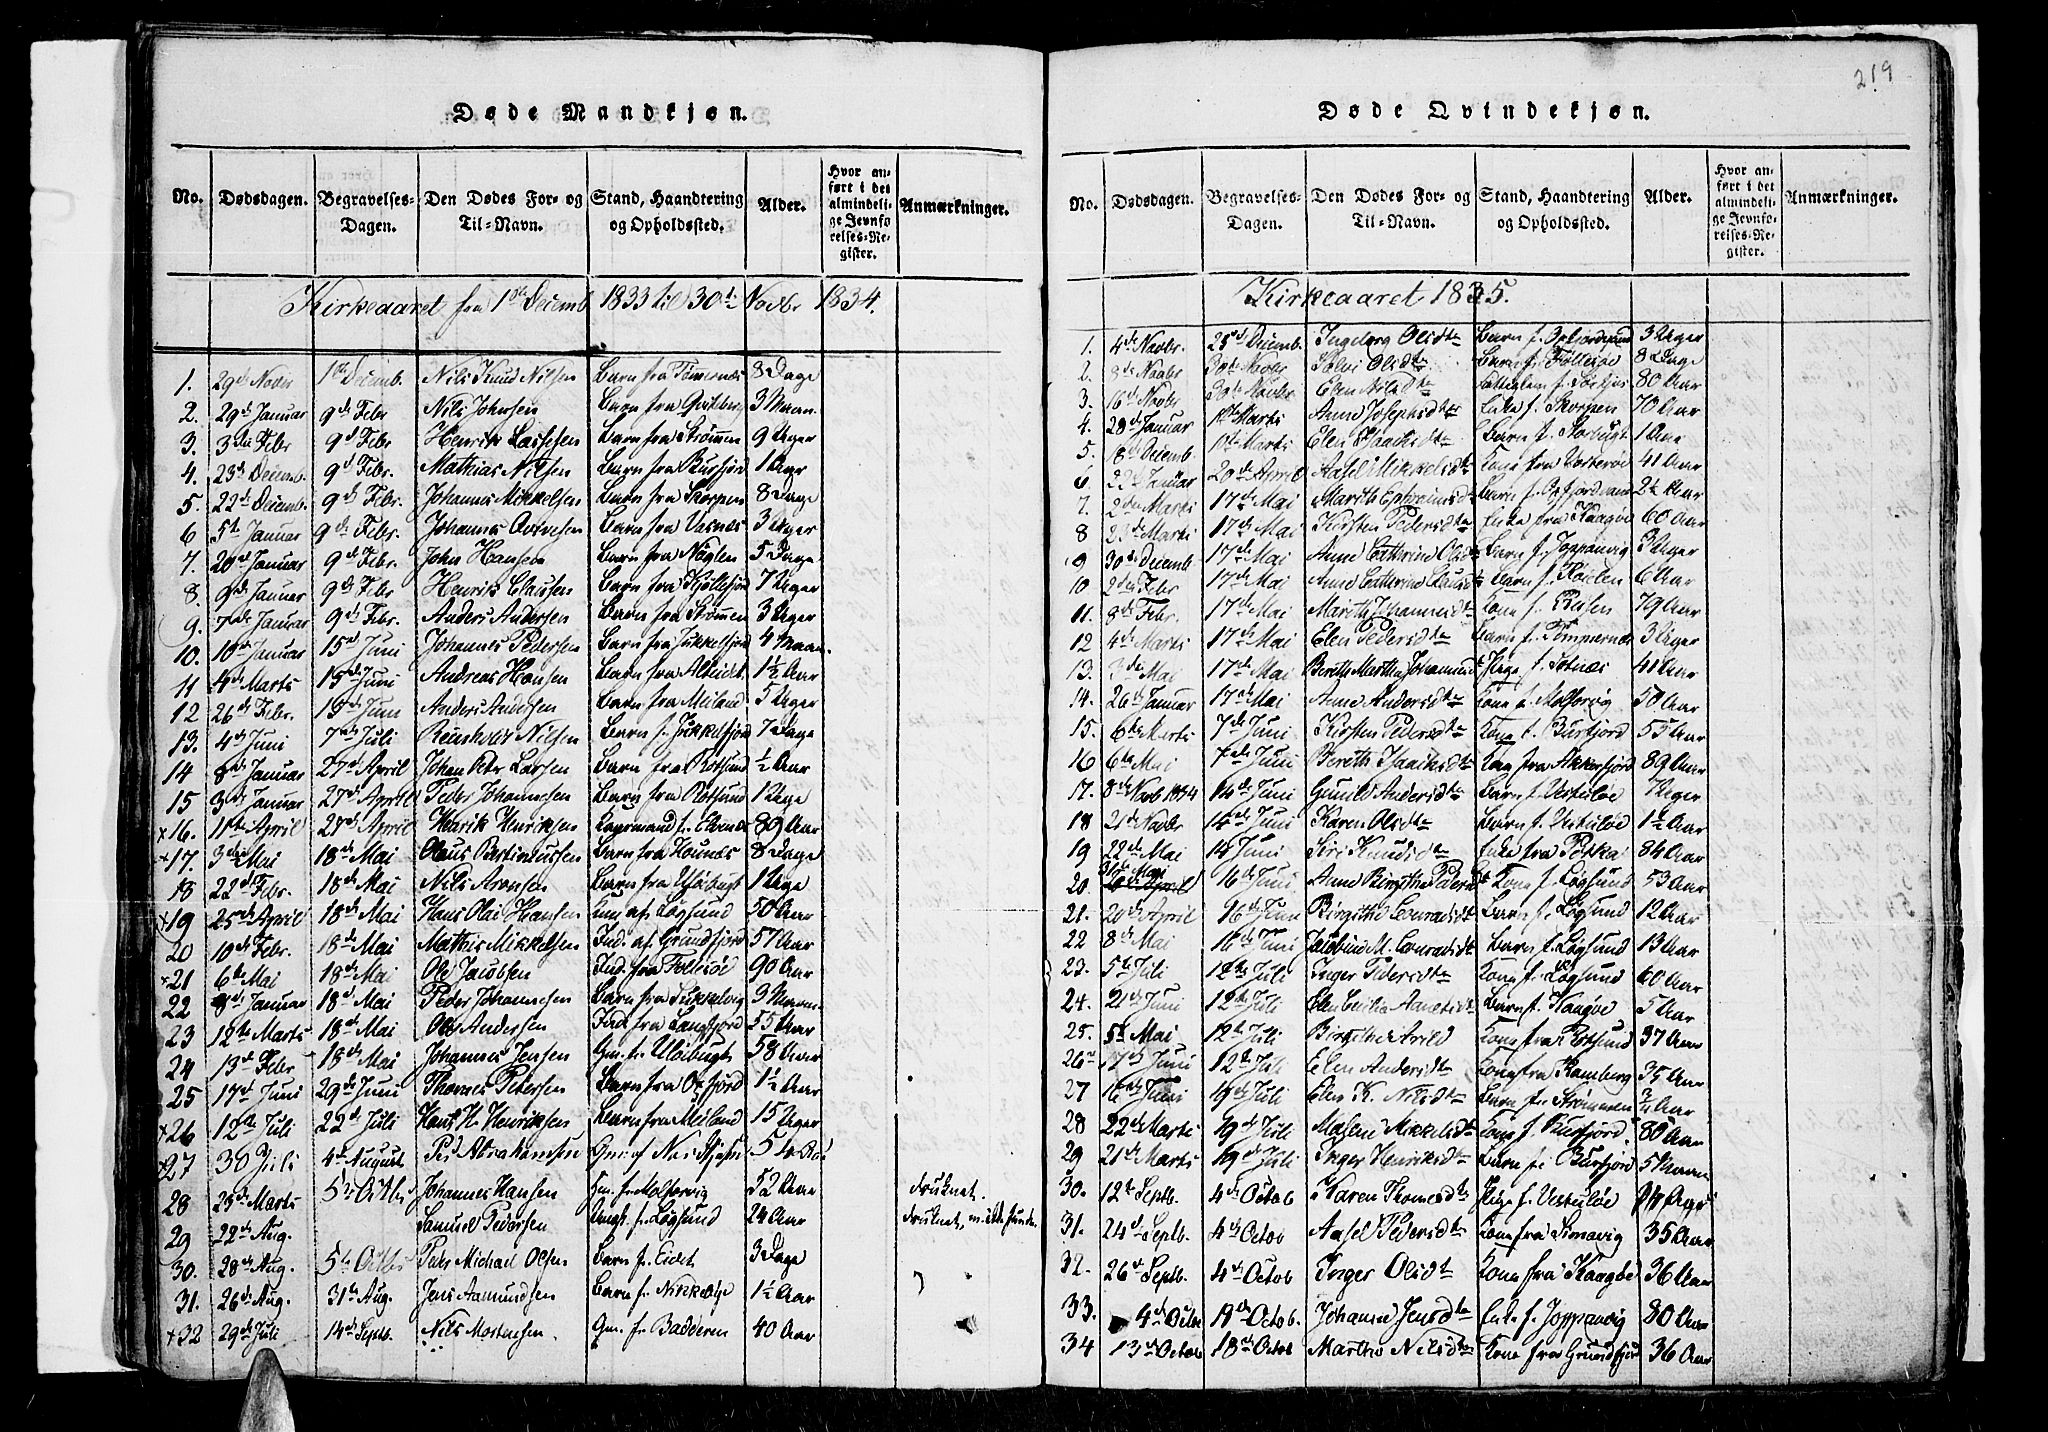 219
Døde Mandkjøn.
No. Dødsdagen. Begravelses-Dagen. Den Dødes For- og Til-Navn. Stand, Haandtering og Opholdssted. Alder. Hvor anført i det almindelige Jevnførelses-Register. Anmærkninger.
Kirkeaaret fra 1ste Decemb. 1833 til 30te Novbr 1834.
1. 29de Novbr 1ste Decemb. Nils Knud Nilsen Barn fra Tømernæs 8 Dage
2. 29de Januar 9de Febr Nils Johnsen Barn fra 3 Maan.
3. 3die Febr 9de Febr Henrik Lassesen Barn fra Strømen 9 Uger
4. 23de Decemb. 9de Febr. Mathias Nilsen Barn fra Burfjord 1 Aar
5. 22de Decemb. 9de Febr. Johannes Mikkelsen Barn fra Skorpen 8 Dage
6 5te Januar 9de Febr. Johannes Barn fra 3 Uger
7. 20de Januar 9de Febr. John Hansen Barn fra 5 Dage
8. 9de Januar 9de Febr. Henrik Clausen Barn fra 7 Uger
9. 7de Januar 9de Febr. Anders Andersen Barn fra Strømen 3 Uger
10. 10de Januar 15de Juni Johannes Pedersen Barn fra Jøkkelfjord 4 Maan.
11 4de Marts 15de Juni Andreas Hansen Barn fra 1½ Aar
12 26de Febr. 15de Juni Anders Andersen Barn fra Meiland 5 Uger
13. 4de Juni 7de Juli Reinholt Nilsen Barn f. Jøkkelfjord 7 Dage
14 8de Januar 27de April Johan Peter Larsen Barn fra Rotsund ½ Aar
15 3die Januar 27de April Peder Johannesen Barn fra Rotsund 1 Uge
x16. 11te April 27de April Henrik Henriksen f. 89 Aar
x17. 3die Mai 18de Mai Claus Bertiniussen Barn fra 8 Dage
18 22de Febr. 18de Mai Nils Aronsen Barn fra Uløibugt 1 Uge
x19 25de April 18de Mai Hans Olai Hansen af Løgsund 50 Aar
20 10de Febr. 18de Mai Mathis Mikkelsen Ind. af Grundfjord 57 Aar
x21 6te Mai 18de Mai Ole Jacobsen Ind. fra Follesøe 90 Aar
22 8de Januar 18de Mai Peder Johannesen Barn fra 3 Maan.
23 12te Marts 18de Mai Ole Andersen Ind. fra Langfjord 55 Aar
24 13de Febr 18de Mai Johannes Jensen Gm. fr. Uløibugt 58 Aar
25 17de Juni 29de Juni Thomas Pedersen Barn fra Oxfjord 1½ Aar
x26 12te Juli 22de Juli Hans H. Henriksen Barn fra Meiland 15 Uger
x27 30 Juli 4de August Ped Abrahamsen Gm. af 54 Aar
28 25de Marts 5te Octbr Johannes Hansen Gm. f. 52 Aar druknet.
29 22de Aug. Samuel Pedersen Ungk. f. Løgsund 24 Aar druknet, m. ikke funden
30. 28de Aug. 5te Octbr Peder Michael Olsen Barn f. Eidet 3 Dage
31. 26de Aug. 31te Aug. Jens Aamundsen Barn f. 1½ Aar
x32 29de Juli 14de Septb. Nils Mortensen Gm. f. Badderen 40 Aar
Døde Qvindekjøn.
No. Dødsdagen. Begravelses-Dagen. Den Dødes For- og Til-Navn. Stand, Haandtering og Opholdssted. Alder. Hvor anført i det almindelige Jevnførelses-Register. Anmærkninger.
Kirkeaaret 1835.
1. 4de Novbr. 25de Decemb. Ingeborg Olsdtr Barn f. 3 Uger
2. 8de Novbr 30te Novbr Olsdtr Barn f. Follesøe 8 Dage
3. 16de Novbr 30te Novbr Elen Nilsdtr 80 Aar
4. 28de Januar 1ste Marts Anne Josephsdtr Enke f. Skorpen 70 Aar
5. 18de Decemb. 1ste Marts Elen Isaaksdtr Barn f. Storbugt 1 Aar
6 22de Januar 20de April Aasel Mikkelsdtr Kone fra 41 Aar
7. 2den Marts 17de Mai Marith Ephraimsdtr Barn f. 2½ Aar
8 23de Marts 17de Mai Kirsten Pedersdtr Enke fra Kaagøe 60 Aar
9 30te Decemb 17de Mai Anne Cathrine Olsdtr Barn f. Joppanvig 3 Uger
10 2den Febr 17de Mai Anne Cathrine Clausdtr Barn f. 6 Aar
11. 8de Febr. 17de Mai Marith Johannesdtr Kone f. Reisen 79 Aar
12 4de Marts 17de Mai Elen Pedersdtr Barn f. Tømmernæs 3 Uger
13. 3die Mai 17de Mai Bereth Marthe Johannesdtr Pige f. Sotnæs 41 Aar
14. 26de Januar 17de Mai Anne Andersdtr Kone f. 50 Aar
15. 6te Marts 7de Juni Kirsten Pedersdtr Kone f. Burfjord 55 Aar
16 6te Mai 7de Juni Bereth Isaaksdtr Kone fra Akkerfjord 89 Aar
17. 8de Novb 1834 14de Juni Gunild Andersdtr Barn f. Vestuløe 7 Uger
18 21de Novbr 14de Juni Karen Olsdtr Barn f. Vestuløe 1½ Aar
19 22de Mai 14 Juni Siri Knudsdtr Enke fra 84 Aar
20. 31te Mai 16de Juni Anne Birgitha Pedersdtr Kone f. Løgsund 53 Aar
21. 20de April 16de Juni Birgitha Conradsdtr Barn f. Løgsund 12 Aar
22 8de Mai 16de Juni Jacobine M. Conradsdtr Barn f. Løgsund 13 Aar
23. 5te Juli 12te Juli Inger Pedersdtr Kone f. Løgsund 60 Aar
24. 21de Juni 12te Juli Elen Cecilia Barn f. Kaagøe 5 Aar
25. 5te Mai 12te Juli Birgitha Arild Kone fra Rotsund 37 Aar
26 17de Juni 12te Juli Elen Andersdtr Kone fra Ramberg 35 Aar
27 16de Juni 19de Juli Elen K. Nilsdtr Barn fr. Strømmen ¾ Aar
28 22de Marts 19de Juli Malene Mikkelsdtr Kone f. Burfjord 80 Aar
29 21de Marts 19de Juli Inger Henriksdtr Barn f. Burfjord 5 Maan
30. 12te Septb. 4de Octob Karen Thomasdtr Pige f. Vestuløe
31. 24de Septb. 4de Octob Aasel Pedersdtr Kone fra Simavig 35 Aar
32. 26de Septb. 4de Octob Inger Olsdtr Kone fra Kaagøe 36 Aar
33. 4de Octbr 11te Octob. Johanna Jensdtr Enke f. Joppanvig 80 Aar
34 13de Octob 18de Octob Martha Nilsdtr Kone fra Grundfjord 36 Aar